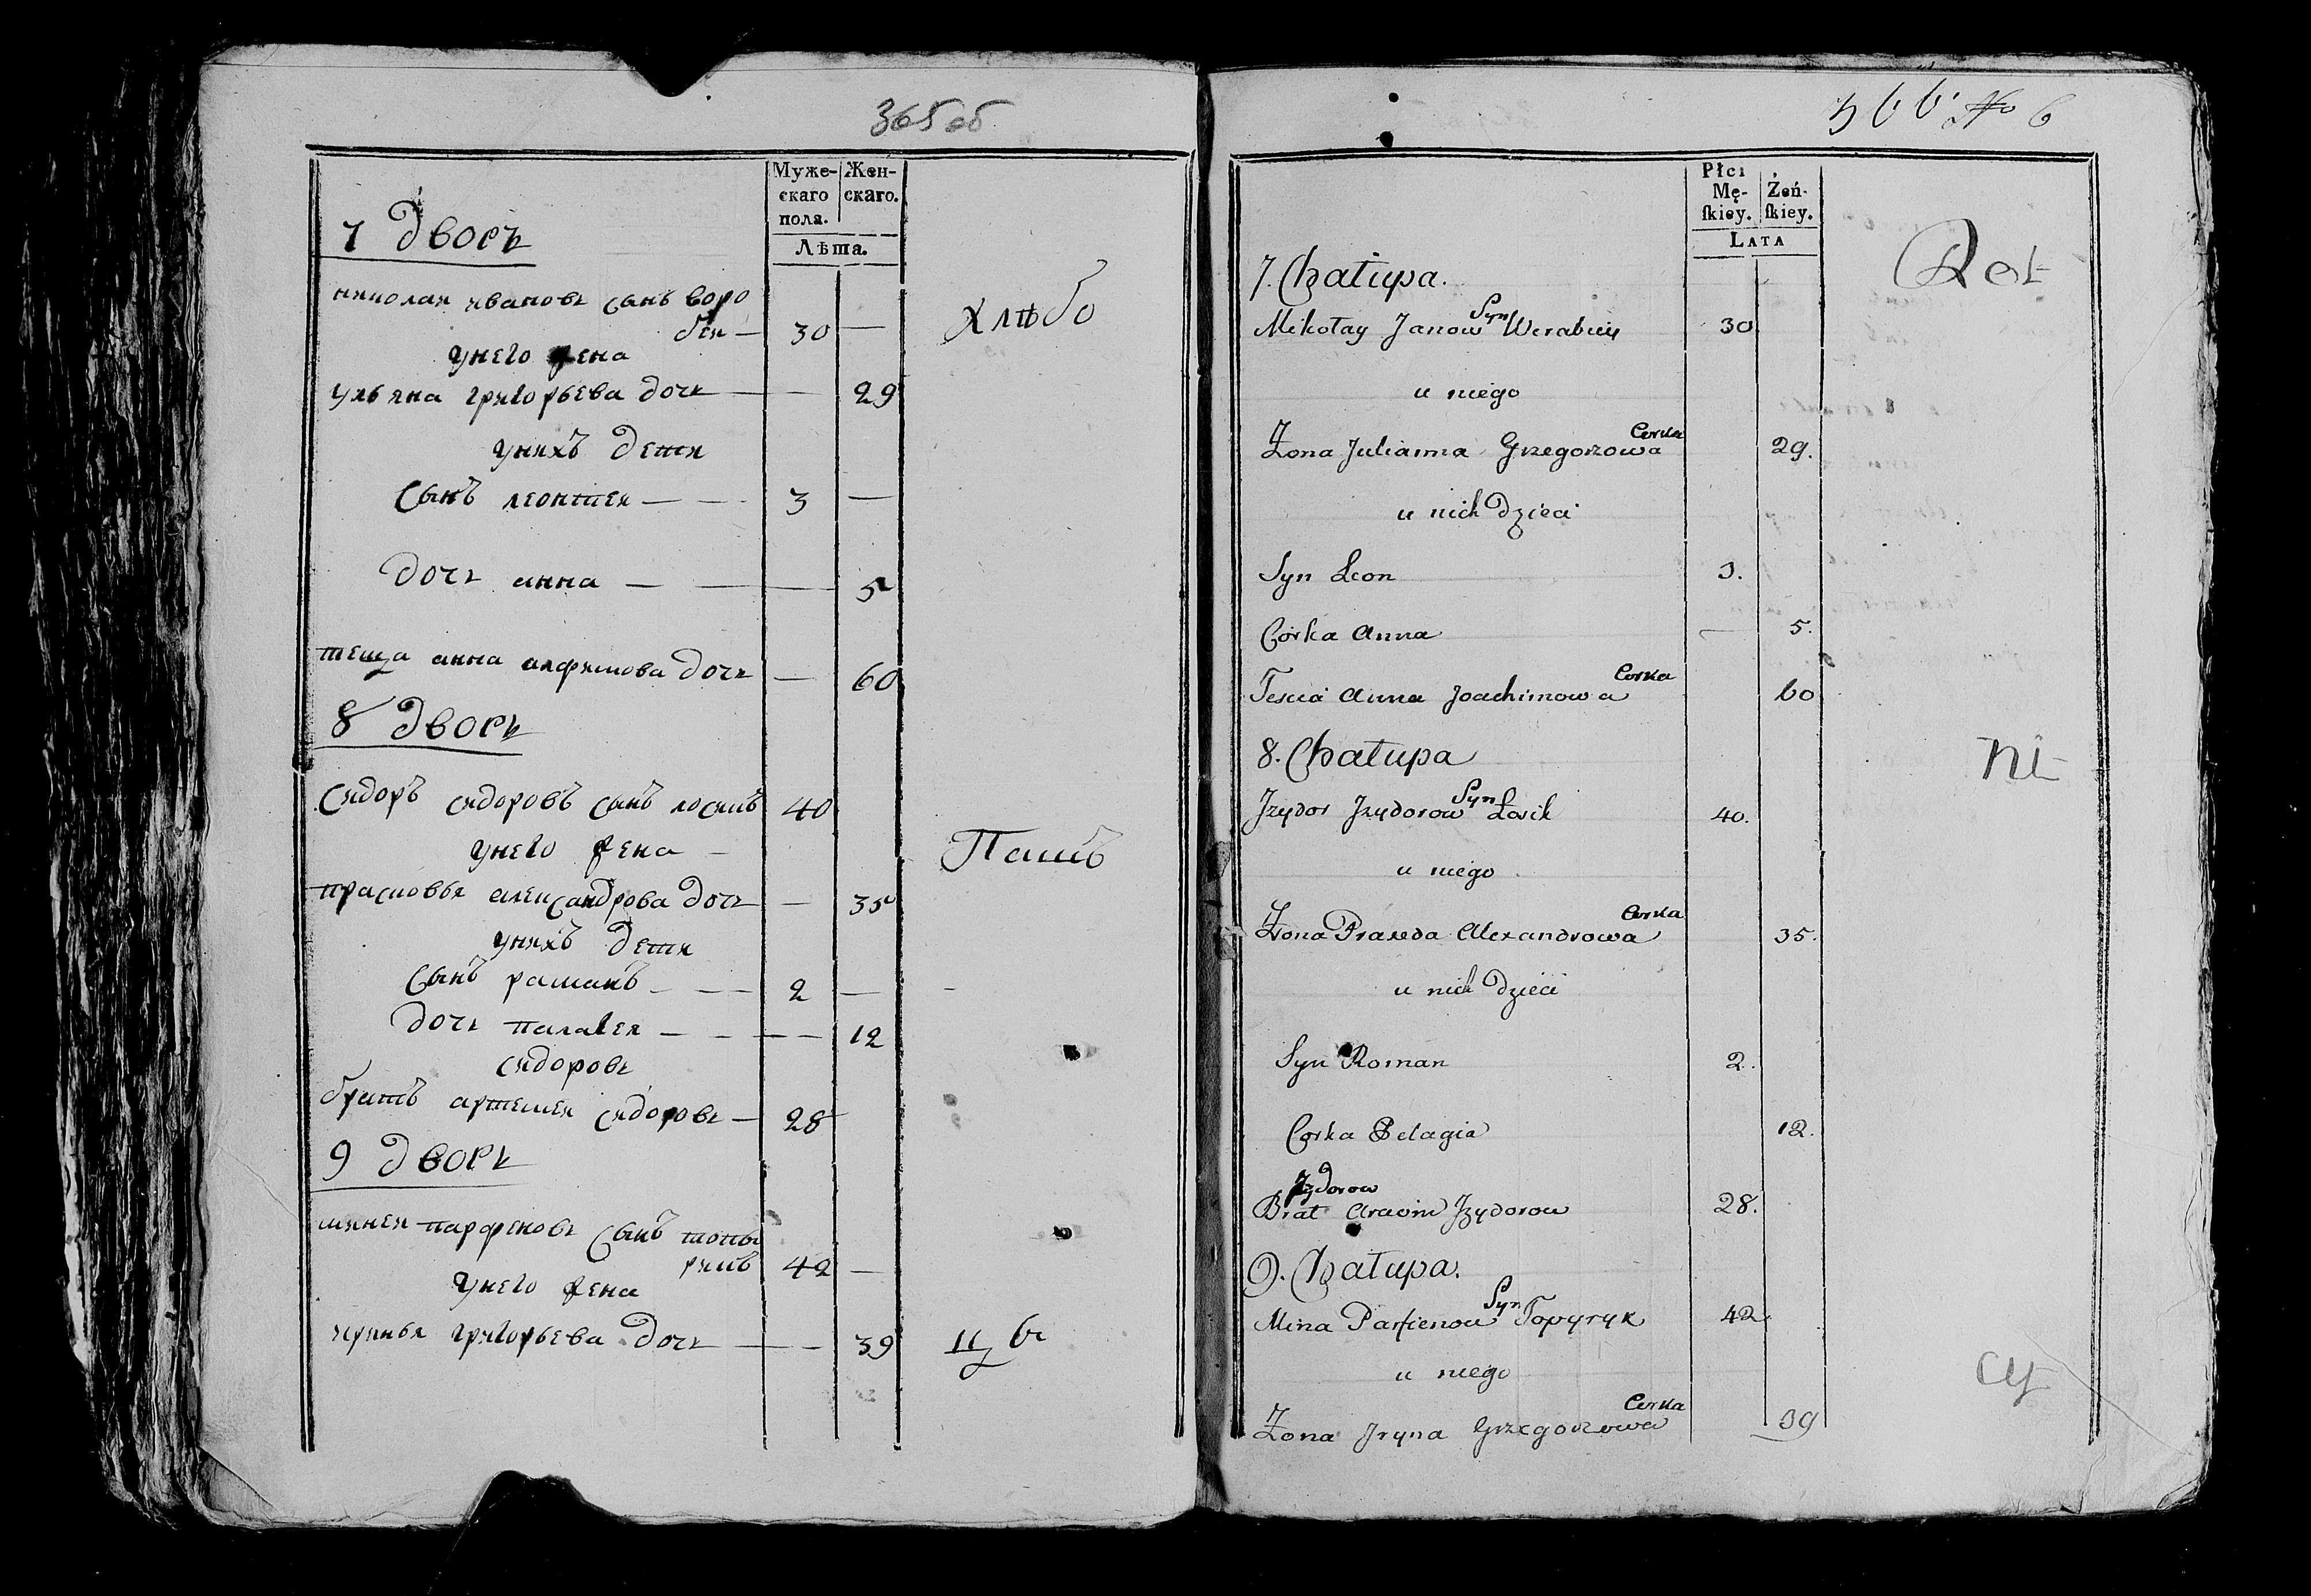 365 об
Муже-
скаго
пола.
Жен-
скаго.
Лѣта.
7 дворъ
николаи ивановъ сынъ воро
беи — 30 —
унего жена
ульяна григорьева дочь — — 29
унихъ дети
сынъ леонтеи — — 3 —
дочь анна — — — 5
теща анна алфимова дочь — 60
8 дворъ
сидоръ сидоровъ сынъ лосикъ 40
унего жена —
прасковья александрова дочь — 35
унихъ дети
сынъ раманъ — — 2 —
дочь палагея — — — — 12
сидоровъ
братъ артемеи сидоровъ — 28
9 дворъ
минеи парфеновъ сынъ топы
рикъ 42 —
унего жена
иринья григорьева дочь — — 39
хлѣбо
Пашъ
цы
366 No 6
Płci
Mę-
skiey.
Żeń-
skiey.
LATA
7. Chałupa.
Mikołay Janow Syn Werabiey 30
u niego
Żona Julianna Grzegorzowa Corka 29.
u nich Dzieci
Syn Leon 3.
Córka Anna — 5.
Tescia Anna Joachimowa Corka 60
8. Chałupa
Jzydor Jzydorow Syn Łosik 40.
u niego
Żona Praxeda Alexandrowa Corka 35.
u nich Dzieci
Syn Roman 2.
Corka Pelagia 12.
Jzydorow
Brat Jzydorow 28.
9. Chałupa.
Mina Parfienow Syn Topyryk 42
u niego
Żona Jryna Grzegorzowa Corka 39
Rol
ni
cy